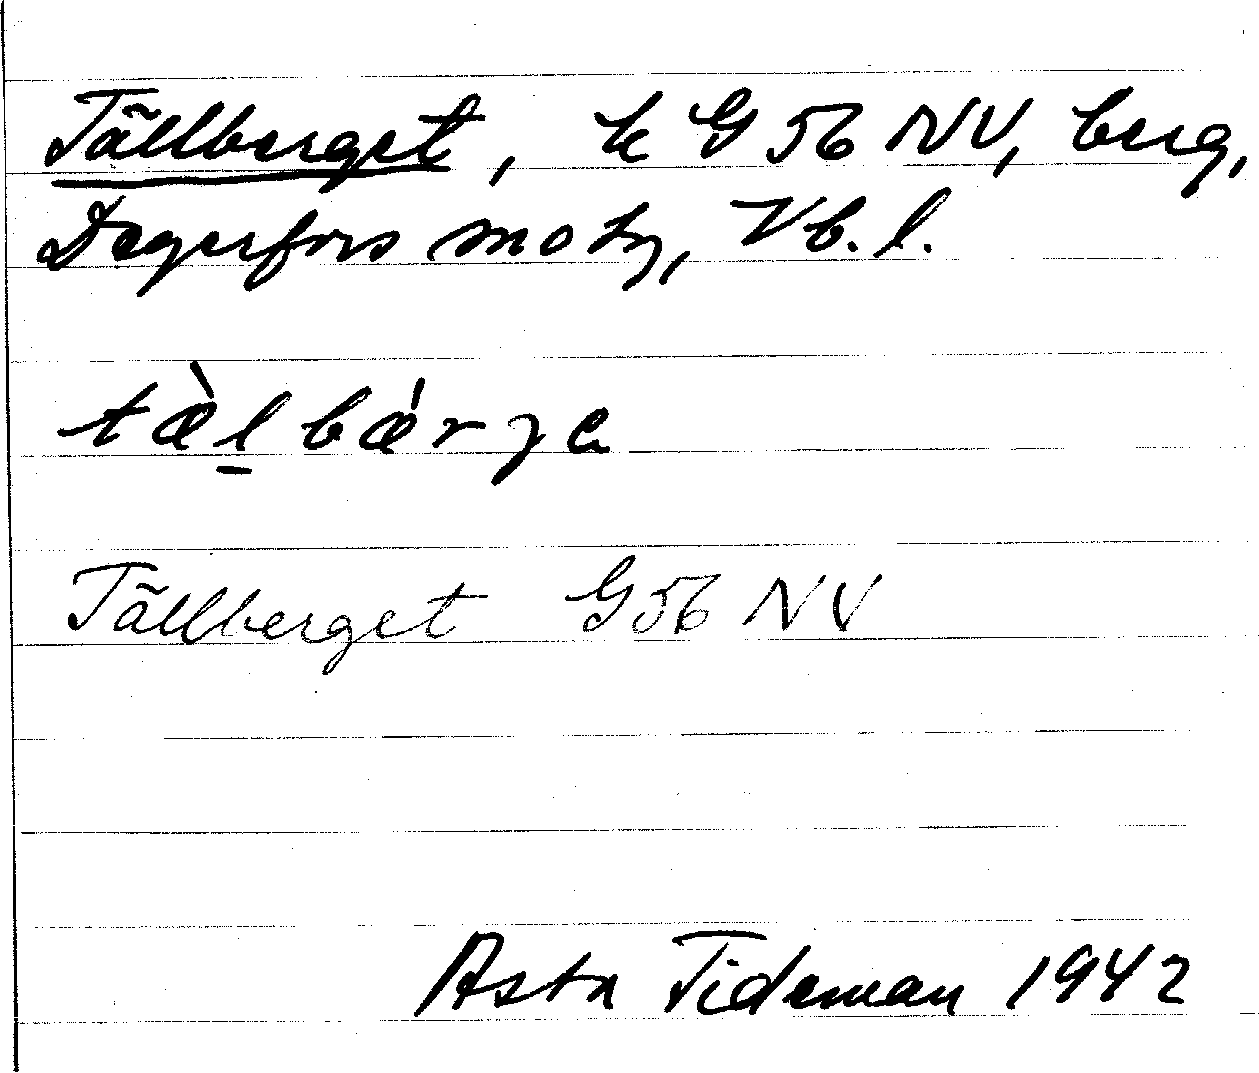 Tällberget, k G 56 NV, berg,
Degerfors sn o tg, Vb. l.
tæ̀l̠bǽrɣɛ
Tällberget G 56 NV
Asta Tideman 1942